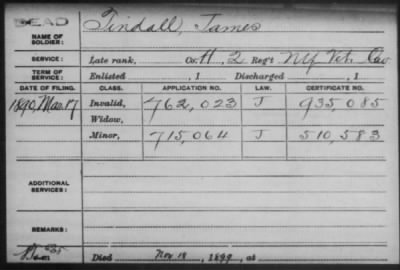 DEAD
NAME OF SOLDIER: Tindall, James
SERVICE: Late rank, Co. H, 2 Reg't NY Vet. Cav
TERM OF SERVICE: Enlisted , 1 Discharged , 1
DATE OF FILING. CLASS. APPLICATION NO. LAW. CERTIFICATE NO.
1890, Mar. 17 Invalid, 762,023 J 935,085
Widow,
Minor, 715,064 J 510,583
ADDITIONAL SERVICES:
REMARKS:
Died Nov 18, 1899, at